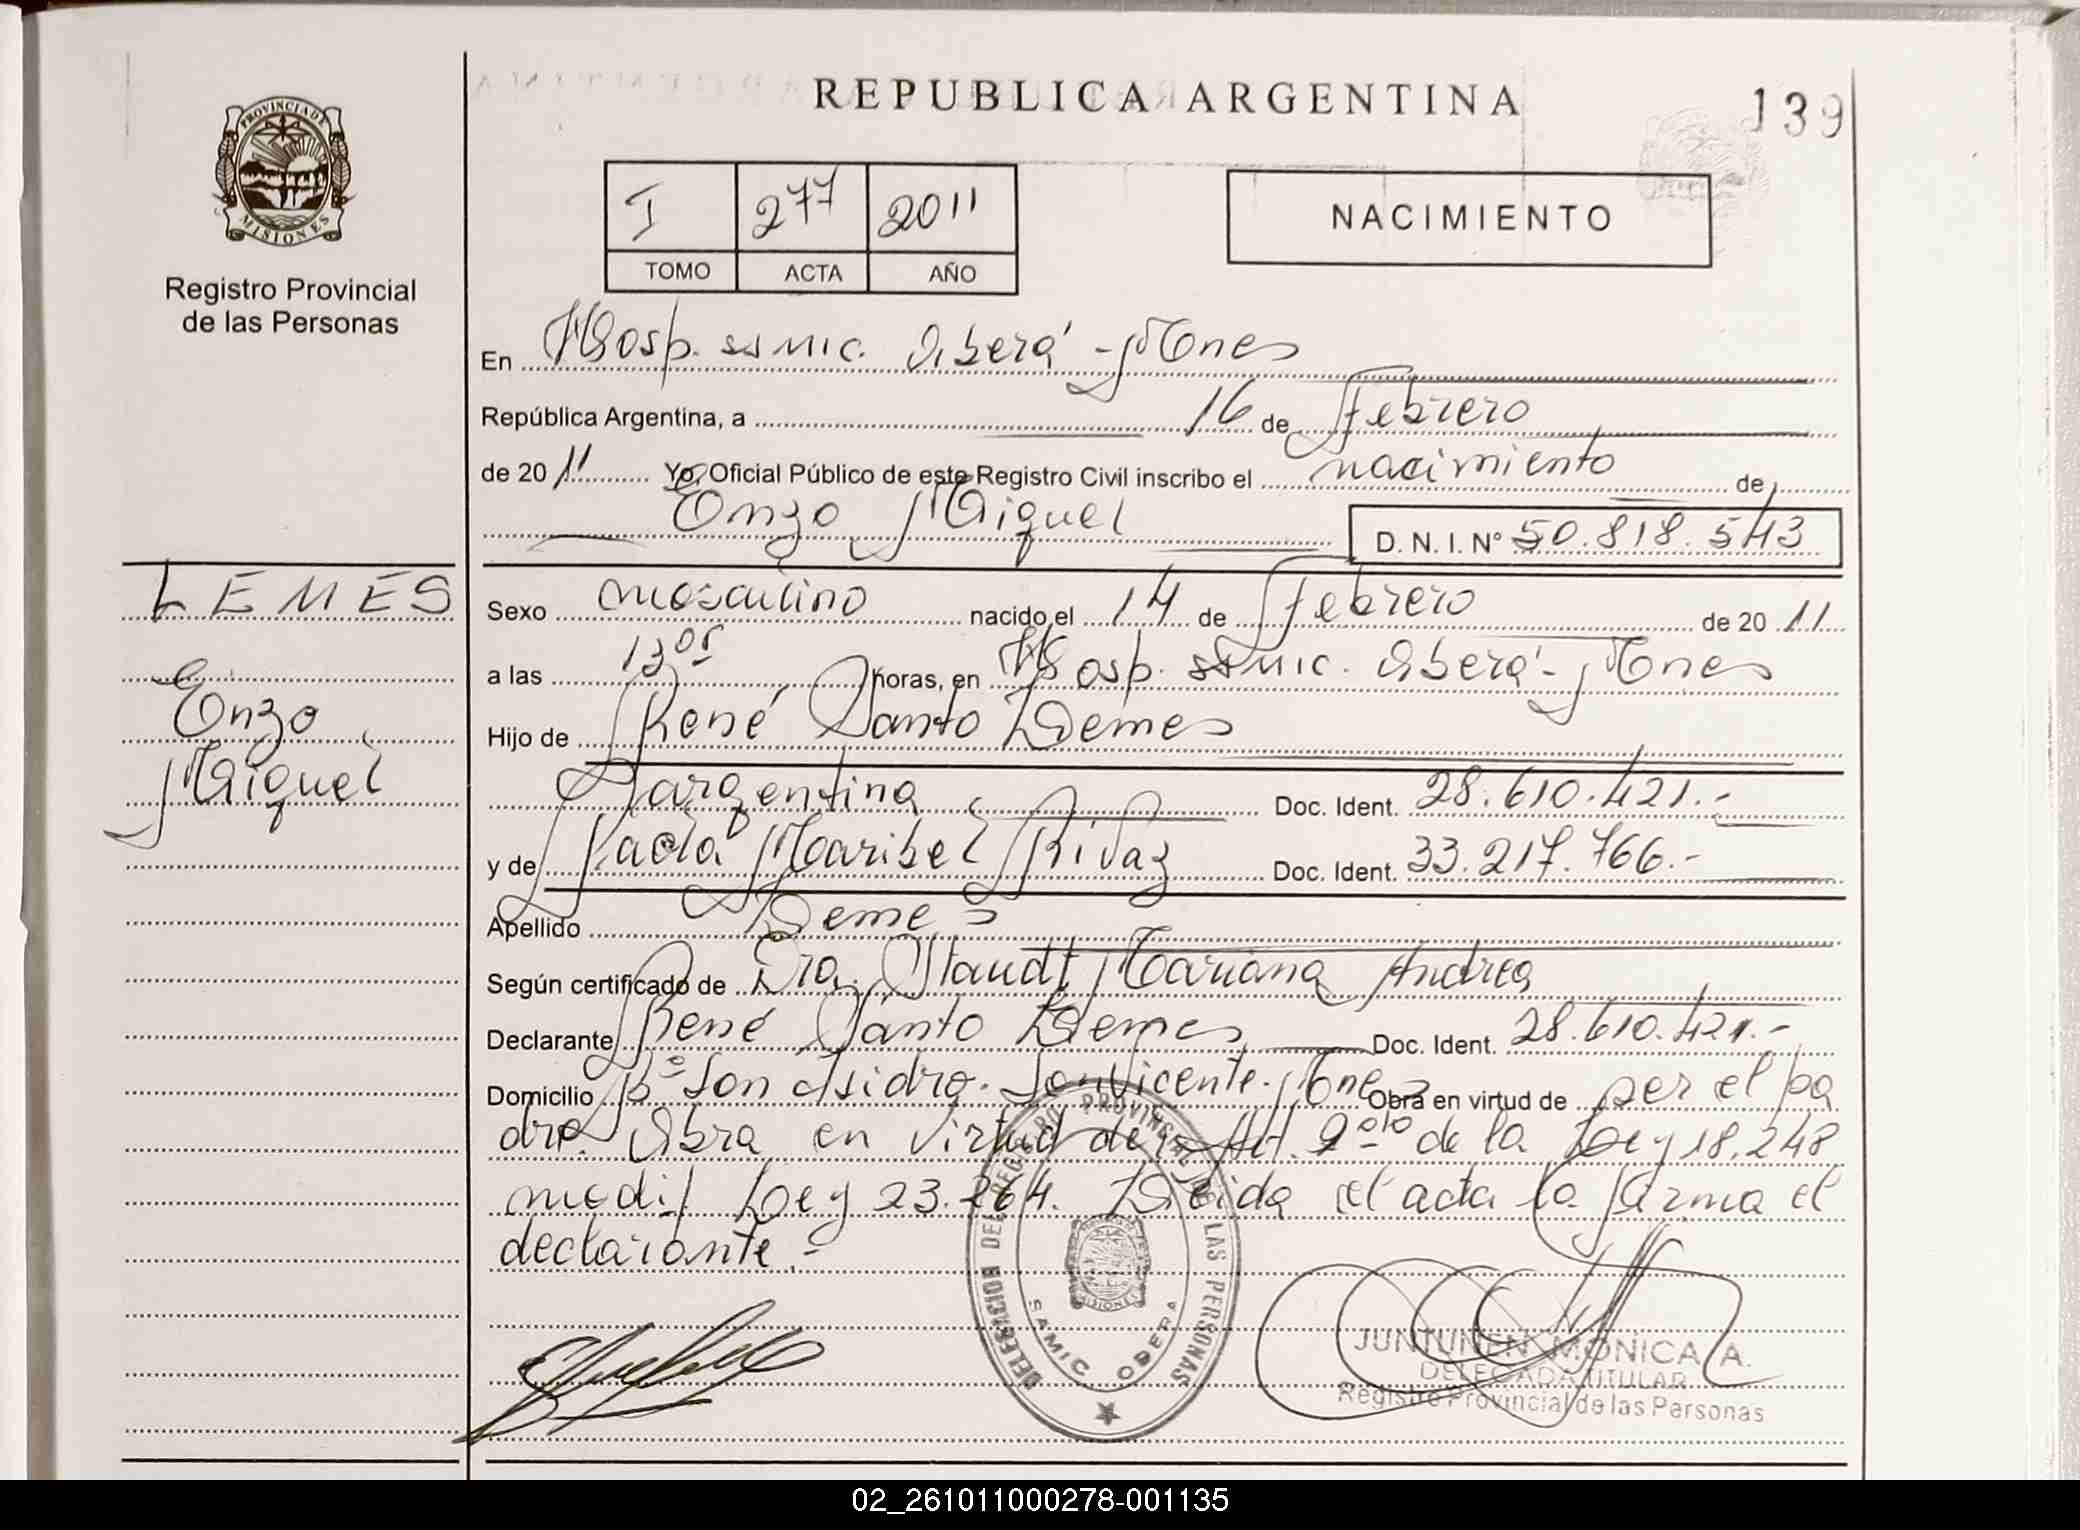 REPUBLICA ARGENTINA
139
PROVINCIA DE
MISIONES
Registro Provincial
de las Personas
I 277 2011
TOMO ACTA AÑO
NACIMIENTO
En Hosp. ssmic. Oberá - Mnes
República Argentina, a 16 de Febrero
de 20 11 Yo, Oficial Público de este Registro Civil inscribo el nacimiento de
Enzo Miguel D. N. I. Nº 50.818.543
LEMES
Enzo
Miguel
Sexo masculino nacido el 14 de Febrero de 20 11
a las 13 05 horas, en Hosp. ssmic. Oberá - Mnes
Hijo de René Santo Lemes
argentina Doc. Ident. 28.610.421.-
y de Paola Maribel Rivaz Doc. Ident. 33.217.766.-
Apellido Lemes
Según certificado de Dra. Staudt Mariana Andrea
Declarante René Santo Lemes Doc. Ident. 28.610.421.-
Domicilio Bº San Isidro. San Vicente. Mnes Obra en virtud de ser el pa
dre. Obra en virtud del Art. 2º de la Ley 18.248
modif Ley 23.264. Leida el acta la firma el
declarante.-
DELEGACION DEL REGISTRO PROVINCIAL DE LAS PERSONAS
MISIONES
SAMIC OBERA
JUNTUNEN MONICA A.
DELEGADA TITULAR
Registro Provincial de las Personas
02_261011000278-001135